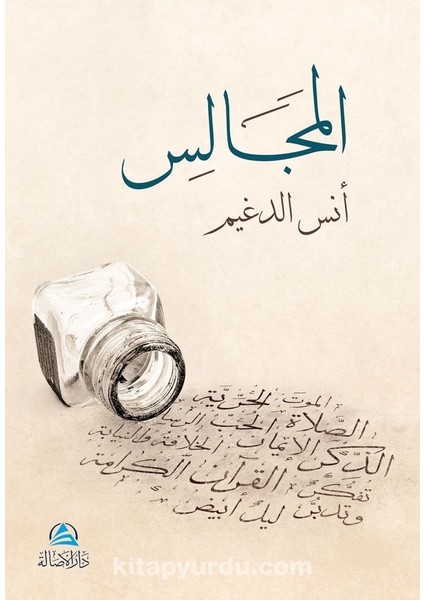 المجَالسِ
أنس الدغيم
الموت الحُرّية
الصَّلاة الحُب
الذِّكر الإيمان الخلافة والنيابة
تفكّر القرآن الكرامة
وتدبّن ليلٌ أبيض
دار الأصالة
kitapyurdu.com